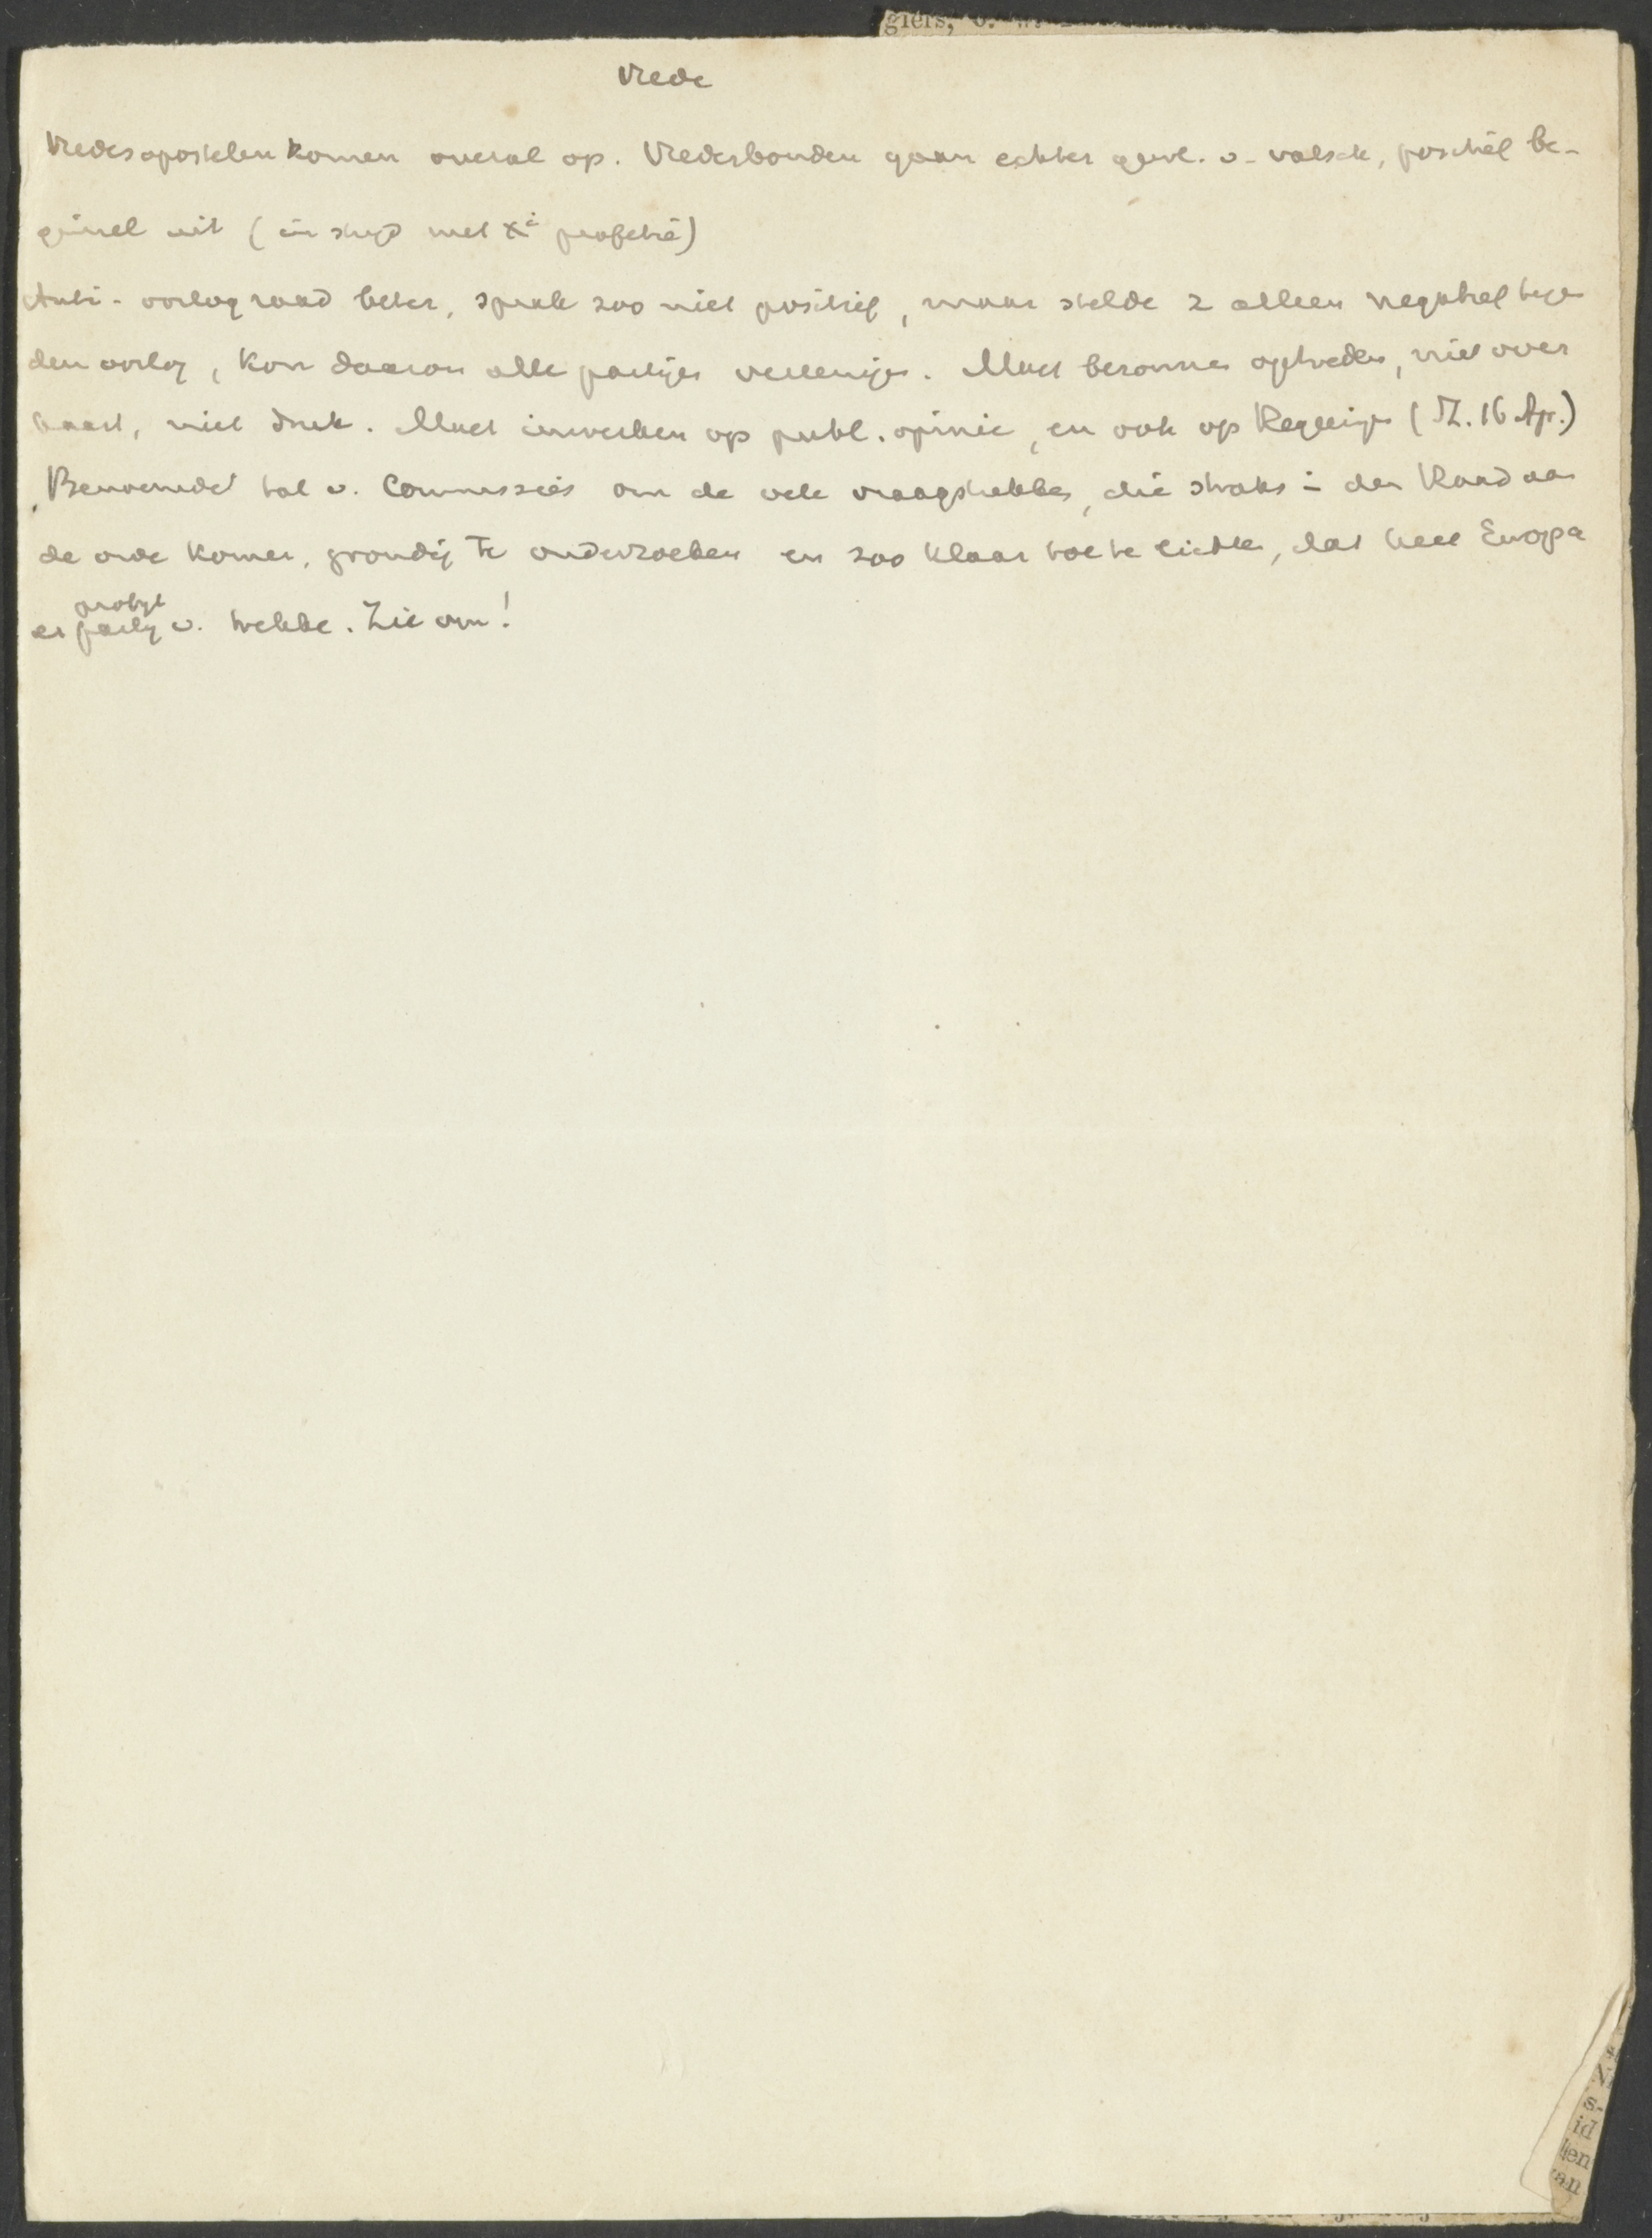 giers,
Vrede
Vredesapostelen komen overal op. Vredesbonden gaan echter gew. v. valsch, positief be-
ginsel uit (in strijd met Xi profetie)
Anti-oorlog raad beter, sprak zoo niet positief, maar stelde z alleen negatief tegen
den oorlog, kon daarom alle partijen vereenigen. Moet bezonnen optreden, niet over
haast, niet druk. Moet inwerken op publ. opinie, en ook op Regeeringen (St. 16 Apr.)
Benoemde tal v. Commissies om de vele vraagstukken, die straks in den Raad aan
de orde komen, grondig te onderzoeken en zoo klaar toe te lichten, dat heel Europa
profijt
er partij v. trekke. Zie om!
s,
id
len
van